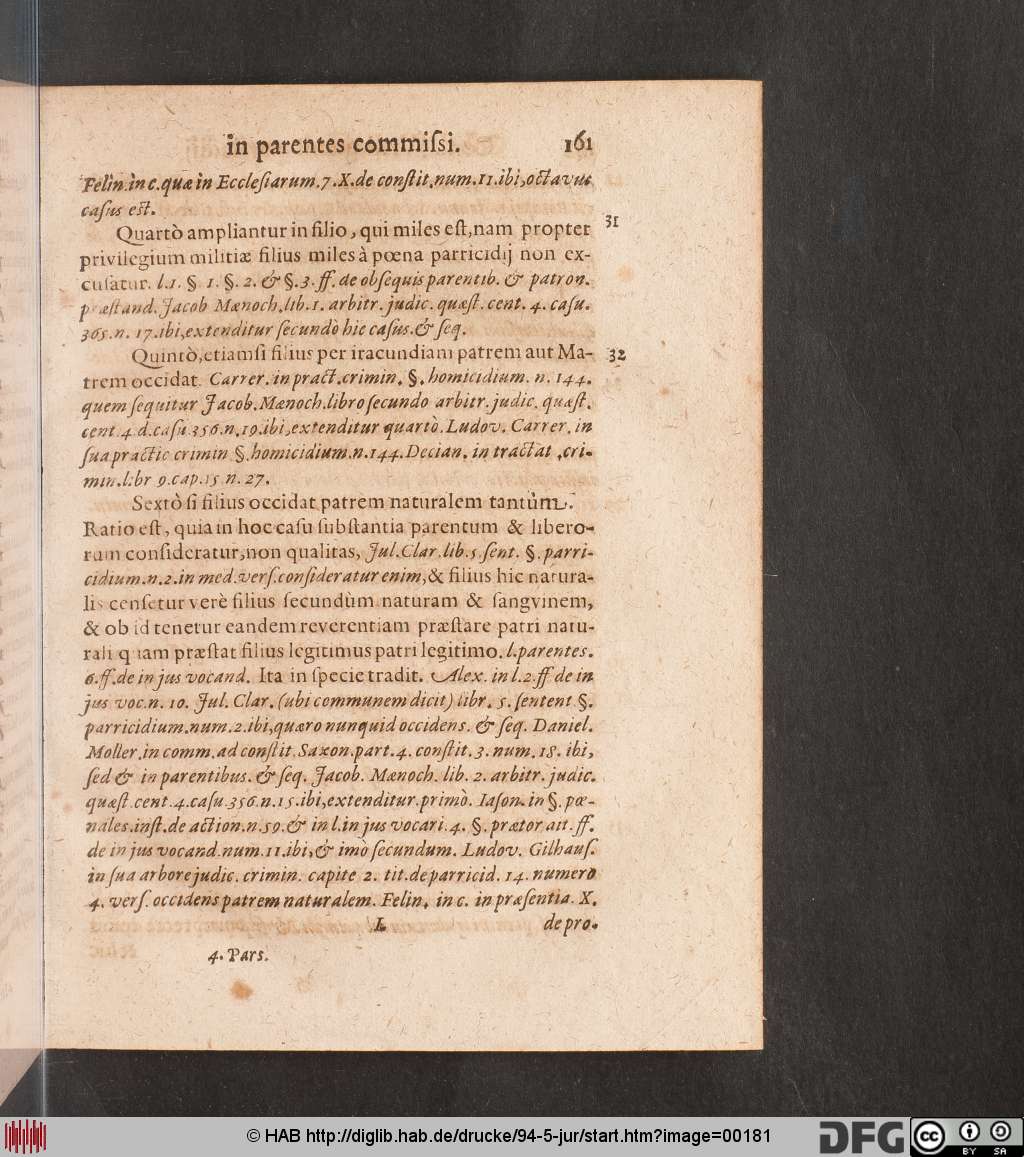 in parentes commiſsi. 161
Felin. in c. quæ in Ecclesiarum. 7. X. de conſtit. num. 11. ibi, octavus
caſus eſt.
Quartò ampliantur in filio, qui miles eſt, nam propter 31
privilegium militiæ filius miles à pœna parricidij non ex-
cuſatur. l. 1. §. 1. §. 2. & §. 3. ff. de obſequis parentib. & patron.
præſtand. Jacob Mænoch. lib. 1. arbitr. judic. quæſt. cent. 4. caſu.
365. n. 17. ibi, extenditur ſecundò hic caſus. & ſeq.
Quintò, etiamſi filius per iracundiam patrem aut Ma- 32
trem occidat. Carrer. in pract. crimin. §. homicidium. n. 144.
quem ſequitur Jacob. Mænoch. libro ſecundo arbitr. judic. quæſt.
cent. 4. d. caſu. 356. n. 19. ibi, extenditur quartò. Ludov. Carrer. in
ſua practic crimin §. homicidium. n. 144. Decian. in tractat. cri-
min. libr 9. cap. 15 n. 27.
Sextò ſi filius occidat patrem naturalem tantùm.
Ratio eſt, quia in hoc caſu ſubſtantia parentum & libero-
rum conſideratur, non qualitas, Jul. Clar. lib. 5. ſent. §. parri-
cidium. n. 2. in med. verſ. conſideratur enim, & filius hic natura-
lis cenſetur verè filius ſecundùm naturam & ſangvinem,
& ob id tenetur eandem reverentiam præſtare patri natu-
rali quam præſtat filius legitimus patri legitimo. l. parentes.
6. ff. de in jus vocand. Ita in ſpecie tradit. Alex. in l. 2. ff de in
jus voc. n. 10. Jul. Clar. (ubi communem dicit) libr. 5. ſentent §.
parricidium. num. 2. ibi, quæro nunquid occidens. & ſeq. Daniel.
Moller. in comm. ad conſtit. Saxon. part. 4. conſtit. 3. num. 18. ibi,
ſed & in parentibus. & ſeq. Jacob. Mænoch. lib. 2. arbitr. judic.
quæſt. cent. 4. caſu. 356. n. 15. ibi, extenditur. primò. Iaſon. in §. pœ-
nales. inſt. de action. n. 59. & in l. in jus vocari. 4. §. prætor ait. ff.
de in jus vocand. num. 11. ibi, & imò ſecundum. Ludov. Gilhauſ.
in ſua arbore judic. crimin. capite 2. tit. de parricid. 14. numero
4. verſ. occidens patrem naturalem. Felin. in c. in præſentia. X.
L de pro-
4. Pars.
© HAB http://diglib.hab.de/drucke/94-5-jur/start.htm?image=00181
DFG
cc BY SA